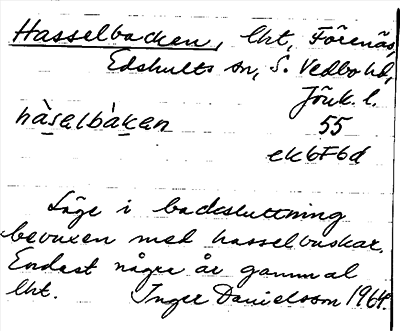 Hasselbacken, lht, Förenäs,
Edshults sn, S. Vedbo hd,
Jönk. l.
hàsalbàken 55
ek6F6d
Läge i backsluttning
bevuxen med hasselbuskar.
Endast några år gammal
lht. Inger Danielsson 1964.